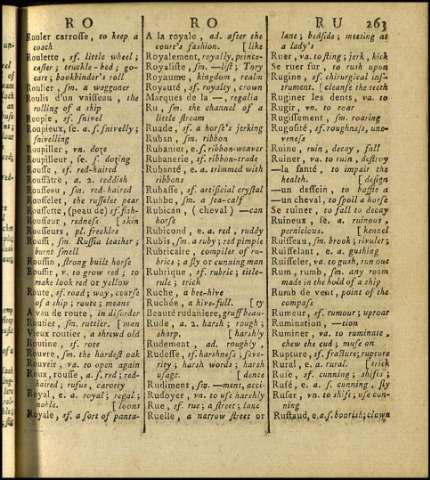 R O
R O
R U
263
Rouler carrosse, to keep a
coach
Roulette, sf. little wheel;
caster; truckle-bed; go-
cart; bookbinder's roll
Roulier, sm. a waggoner
Roulis d'un vaisseau, the
rolling of a ship
Roupie, sf. snivel
Roupieux, se. a. s. snivelly;
snivelling
Roupiller, vn. doze
Roupilleur, se. s. dozing
Rousse, sf. red-haired
Roussâtre, a. 2. reddish
Rousseau, sm. red-haired
Rousselet, the russelet pear
Roussette, (peau de) sf. fish-
Rousseur, redness [skin
Rousseurs, pl. freckles
Roussi, sm. Russia leather;
burnt smell
Roussin, strong built horse
Roussir, v. to grow red; to
make look red or yellow
Route, sf. road; way; course
of a ship; route; means
A vau de route, in disorder
Routier, sm. rutter. [man
Vieux routier, a shrewd old
Routine, sf. rote
Rouvre, sm. the hardest oak
Rouvrir, va. to open again
Roux, rousse, a. s. red; red-
haired; rufus; carroty
Royal, e. a. royal; regal;
noble. [loons
Royale, sf. a sort of panta-
A la royale, ad. after the
court's fashion. [like
Royalement, royally, prince-
Royaliste, sm. —list; Tory
Royaume, kingdom, realm
Royauté, sf. royalty, crown
Marques de la —, regalia
Ru, sm. the channel of a
little stream
Ruade, sf. a horse's jerking
Ruban, sm. ribbon
Rubanier, e. s. ribbon-weaver
Rubanerie, sf. ribbon-trade
Rubanté, e. a. trimmed with
ribbons
Rubasse, sf. artificial crystal
Rubbe, sm. a sea-calf
Rubican, (cheval) —can
horse
Rubicond, e. a. red, ruddy
Rubis, sm. a ruby; red pimple
Rubricaire, compiler of ru-
brics; a sly or cunning man
Rubrique, sf. rubric; title-
rule; trick
Ruche, a bee-hive
Ruchée, a hive-full. [ty
Beauté rudaniere, gruff beau-
Rude, a. 2. harsh; rough;
sharp. [harshly
Rudement, ad. roughly,
Rudesse, sf. harshness, seve-
rity; harsh words; harsh
usage. [dence
Rudiment, sm. —ment, acci-
Rudoyer, va. to use harshly
Rue, sf. rue; a street; lane
Ruelle, a narrow street or
lane; bedside; meeting at
a lady's
Ruer, va. to fling; jerk, kick
Se ruer sur, to rush upon
Rugine, sf. chirurgical inf-
strument. [cleanse the teeth
Ruginer les dents, va. to
Rugir, vn. to roar
Rugissement, sm. roaring
Rugosité, sf. roughness, une-
venness
Ruine, ruin, decay, fall
Ruiner, va. to ruin, destroy
—la santé, to impair the
health. [design
—un dessein, to baffle a
—un cheval, to spoil a horse
Se ruiner, to fall to decay
Ruineux, se. a. ruinous,
pernicious. [kennel
Ruisseau, sm. brook; rivulet;
Ruisselant, e. a. gushing
Ruisseler, va. to gush, run out
Rum, rumb, sm. any room
made in the hold of a ship
Rumb de vent, point of the
compass
Rumeur, sf. rumour; uproar
Rumination, —tion
Ruminer, va. to ruminate,
chew the cud; muse on
Rupture, sf. fracture; rupture
Rural, e. a. rural. [trick
Ruse, sf. cunning; shifts;
Rusé, e. a. s. cunning, sly
Ruser, vn. to shift; use cun-
ning
Rustaud, e. a. s. boorish; clown